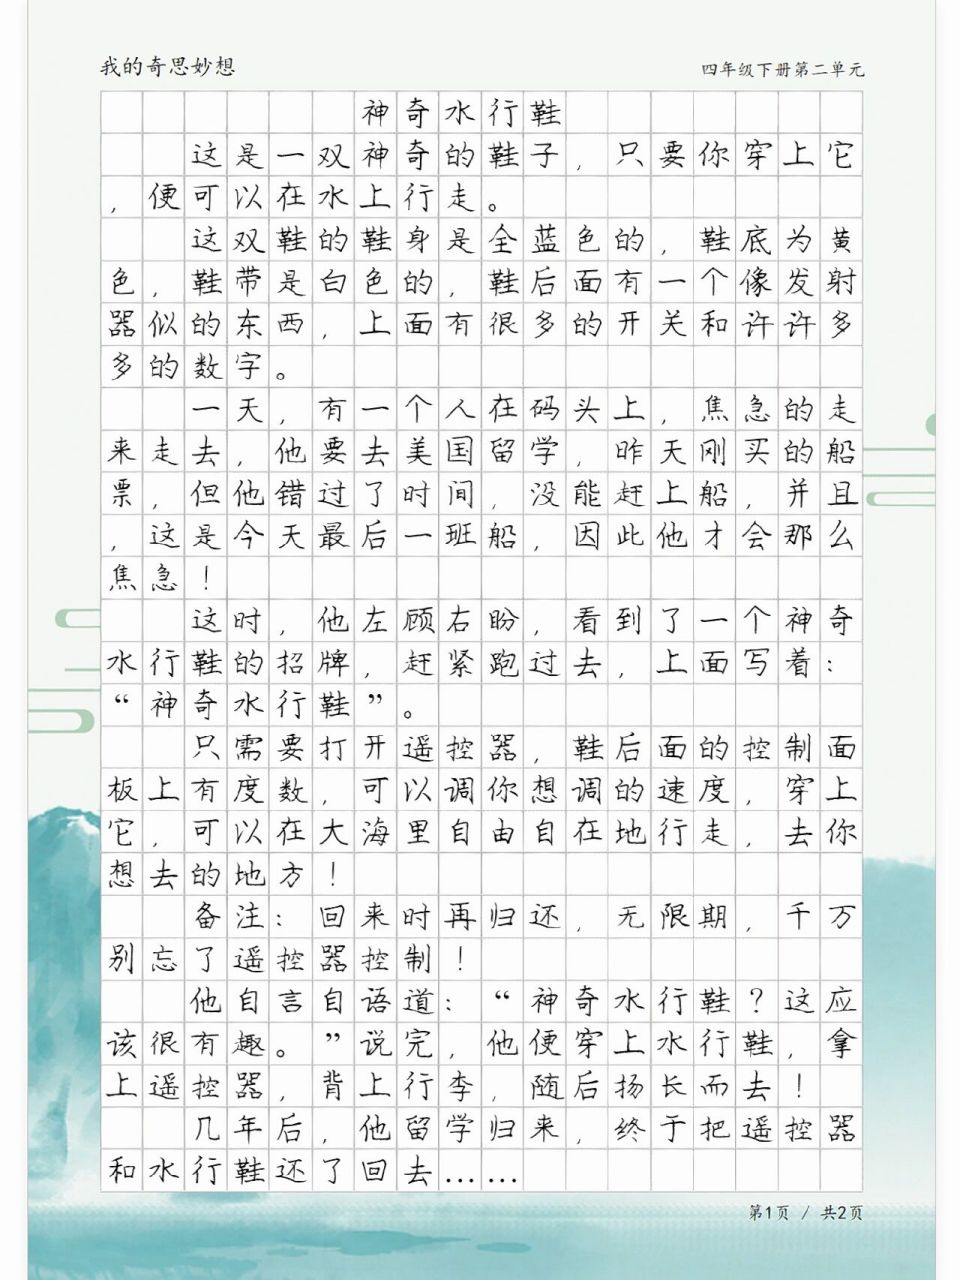 我的奇思妙想
四年级下册第二单元
神奇水行鞋
这是一双神奇的鞋子，只要你穿上它
，便可以在水上行走。
这双鞋的鞋身是全蓝色的，鞋底为黄
色，鞋带是白色的，鞋后面有一个像发射
器似的东西，上面有很多的开关和许许多
多的数字。
一天，有一个人在码头上，焦急的走
来走去，他要去美国留学，昨天刚买的船
票，但他错过了时间，没能赶上船，并且
，这是今天最后一班船，因此他才会那么
焦急！
这时，他左顾右盼，看到了一个神奇
水行鞋的招牌，赶紧跑过去，上面写着：
“神奇水行鞋”。
只需要打开遥控器，鞋后面的控制面
板上有度数，可以调你想调的速度，穿上
它，可以在大海里自由自在地行走，去你
想去的地方！
备注：回来时再归还，无限期，千万
别忘了遥控器控制！
他自言自语道：“神奇水行鞋？这应
该很有趣。”说完，他便穿上水行鞋，拿
上遥控器，背上行李，随后扬长而去！
几年后，他留学归来，终于把遥控器
和水行鞋还了回去……
第1页 / 共2页